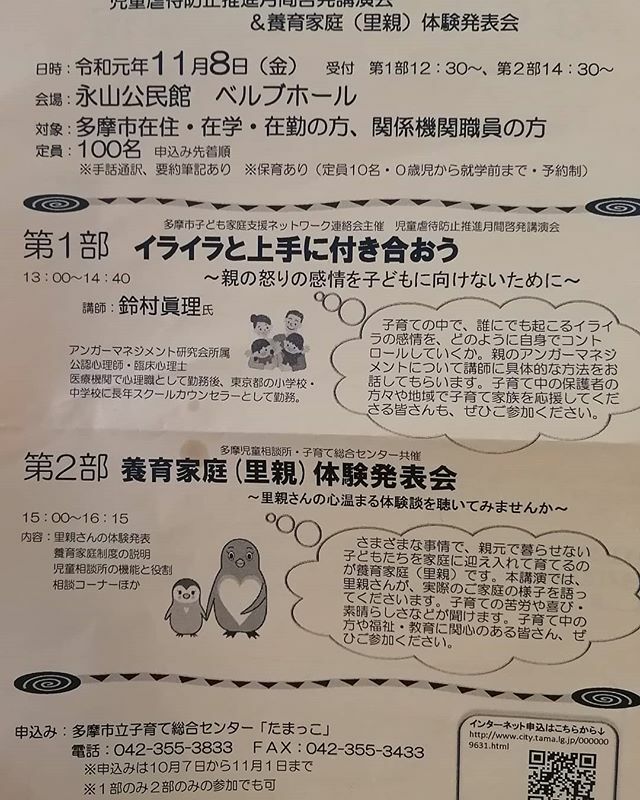 児童虐待防止推進月間啓発講演会
&養育家庭（里親）体験発表会
日時：令和元年11月8日（金）　受付　第1部12：30～、第2部14：30～
会場：永山公民館　ベルブホール
対象：多摩市在住・在学・在勤の方、関係機関職員の方
定員：100名　申込み先着順
※手話通訳、要約筆記あり　※保育あり（定員10名・0歳児から就学前まで・予約制）
多摩市子ども家庭支援ネットワーク連絡会主催　児童虐待防止推進月間啓発講演会
第1部　イライラと上手に付き合おう
13：00～14：40　～親の怒りの感情を子どもに向けないために～
講師：鈴村眞理氏
アンガーマネジメント研究会所属
公認心理師・臨床心理士
医療機関で心理職として勤務後、東京都の小学校・
中学校に長年スクールカウンセラーとして勤務。
子育ての中で、誰にでも起こるイライ
ラの感情を、どのように自身でコント
ロールしていくか。親のアンガーマネジ
メントについて講師に具体的な方法をお
話してもらいます。子育て中の保護者の
方々や地域で子育て家族を応援してくだ
さる皆さんも、ぜひご参加ください。
多摩児童相談所・子育て総合センター共催
第2部　養育家庭（里親）体験発表会
～里親さんの心温まる体験談を聴いてみませんか～
15：00～16：15
内容：里親さんの体験発表
養育家庭制度の説明
児童相談所の機能と役割
相談コーナーほか
さまざまな事情で、親元で暮らせない
子どもたちを家庭に迎え入れて育てるの
が養育家庭（里親）です。本講演では、
里親さんが、実際のご家庭の様子を語っ
てくださいます。子育ての苦労や喜び・
素晴らしさなどが聞けます。子育て中の
方や福祉・教育に関心のある皆さん、ぜ
ひご参加ください。
申込み：多摩市立子育て総合センター「たまっこ」
電話：042-355-3833　FAX：042-355-3433
※申込みは10月7日から11月1日まで
※1部のみ2部のみの参加でも可
インターネット申込はこちらから↓
http://www.city.tama.lg.jp/000000
9631.html